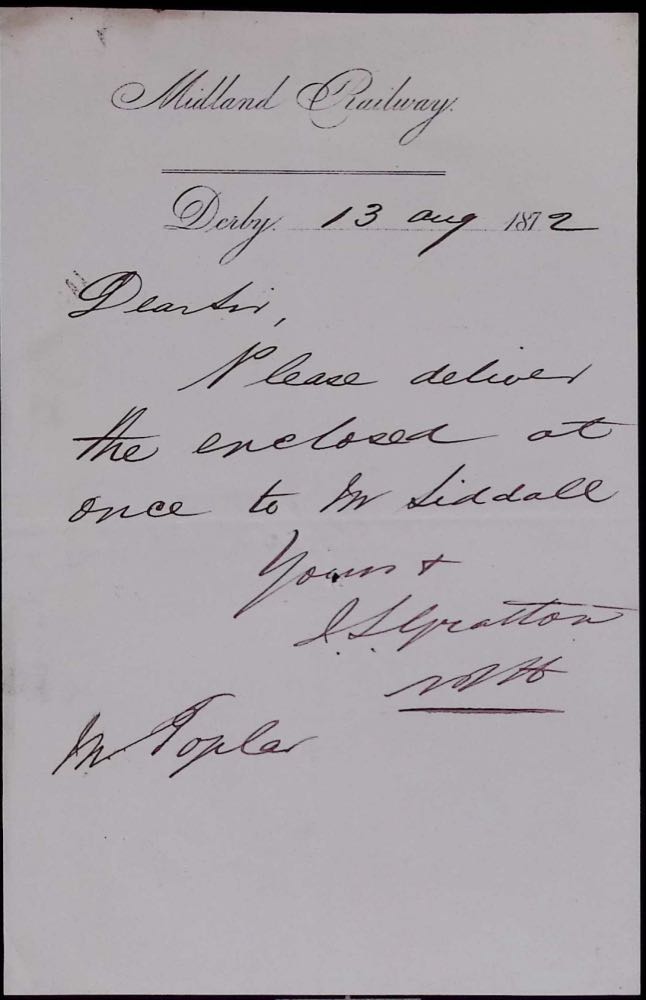 Midland Railway.
Derby. 13 Aug 1872
Dear Sir,
Please deliver
the enclosed at
once to Mr Siddall
Yours +
J S Gratton
Mr Toplar